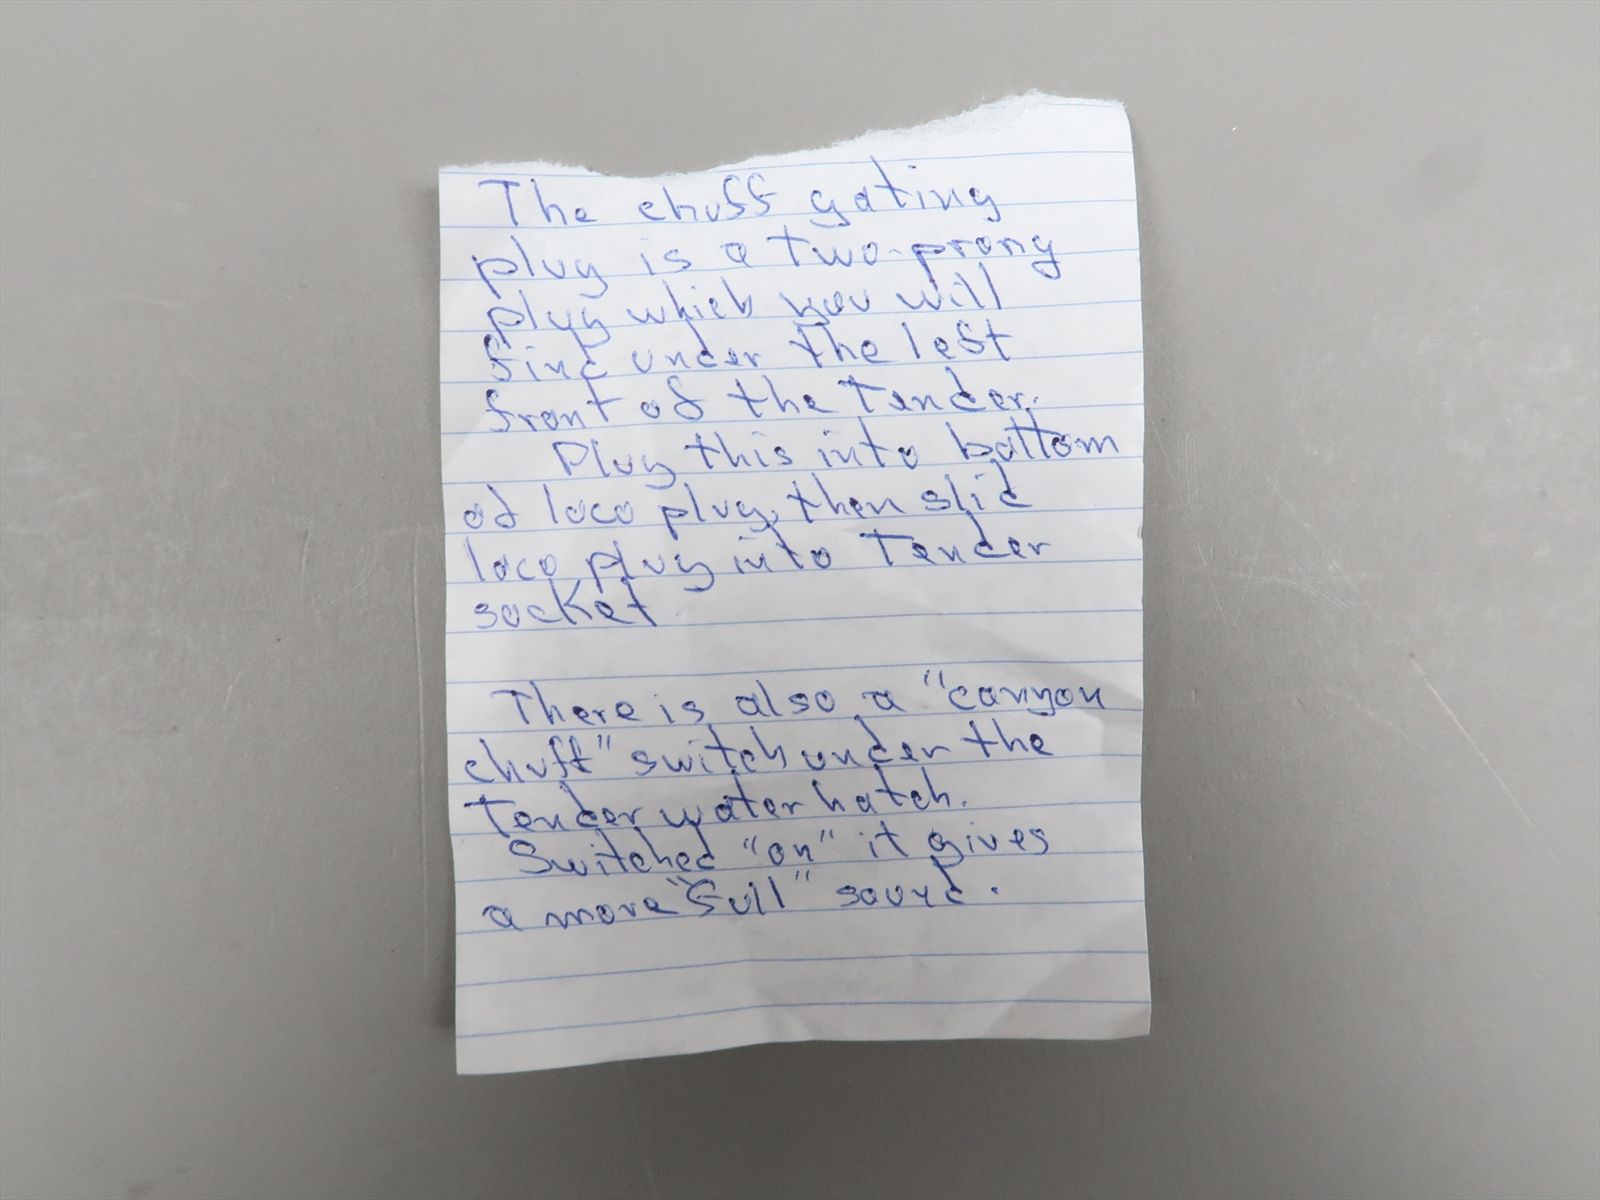 The chuff gating
plug is a two-prong
plug which you will
find under the left
front of the Tender.
Plug this into bottom
of loco plug, then slid
loco plug into Tender
socket
There is also a "canyon
chuff" switch under the
Tender water hatch.
Switched "on" it gives
a more "full" sound.